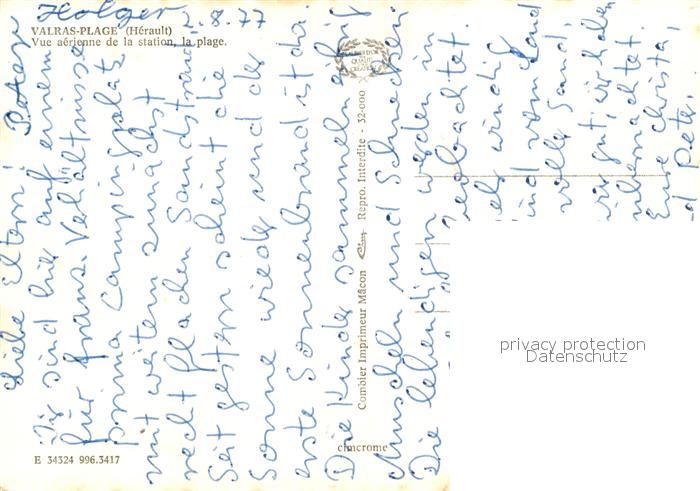 Holger
2.8.77
VALRAS-PLAGE (Hérault)
Vue aérienne de la station, la plage.
Liebe Eltern!
Wir sind hier auf einem
für franz. Verhältnisse
prima Campingplatz
mit weitem zunächst
recht flachen Sandstrand
Seit gestern scheint die
Sonne wieder und der
erste Sonnenbrand ist da.
Die Kinder sammeln
Muscheln und Schnecken.
Die lebendigen werden in
beobachtet.
windig
und vom Land
voller Sand.
gut, wir haben
übernachtet.
Eure Christa,
Peter,
E 34324 996.3417
Combier Imprimeur Mâcon
Repro. Interdite - 32-000
cimcrome
privacy protection
Datenschutz